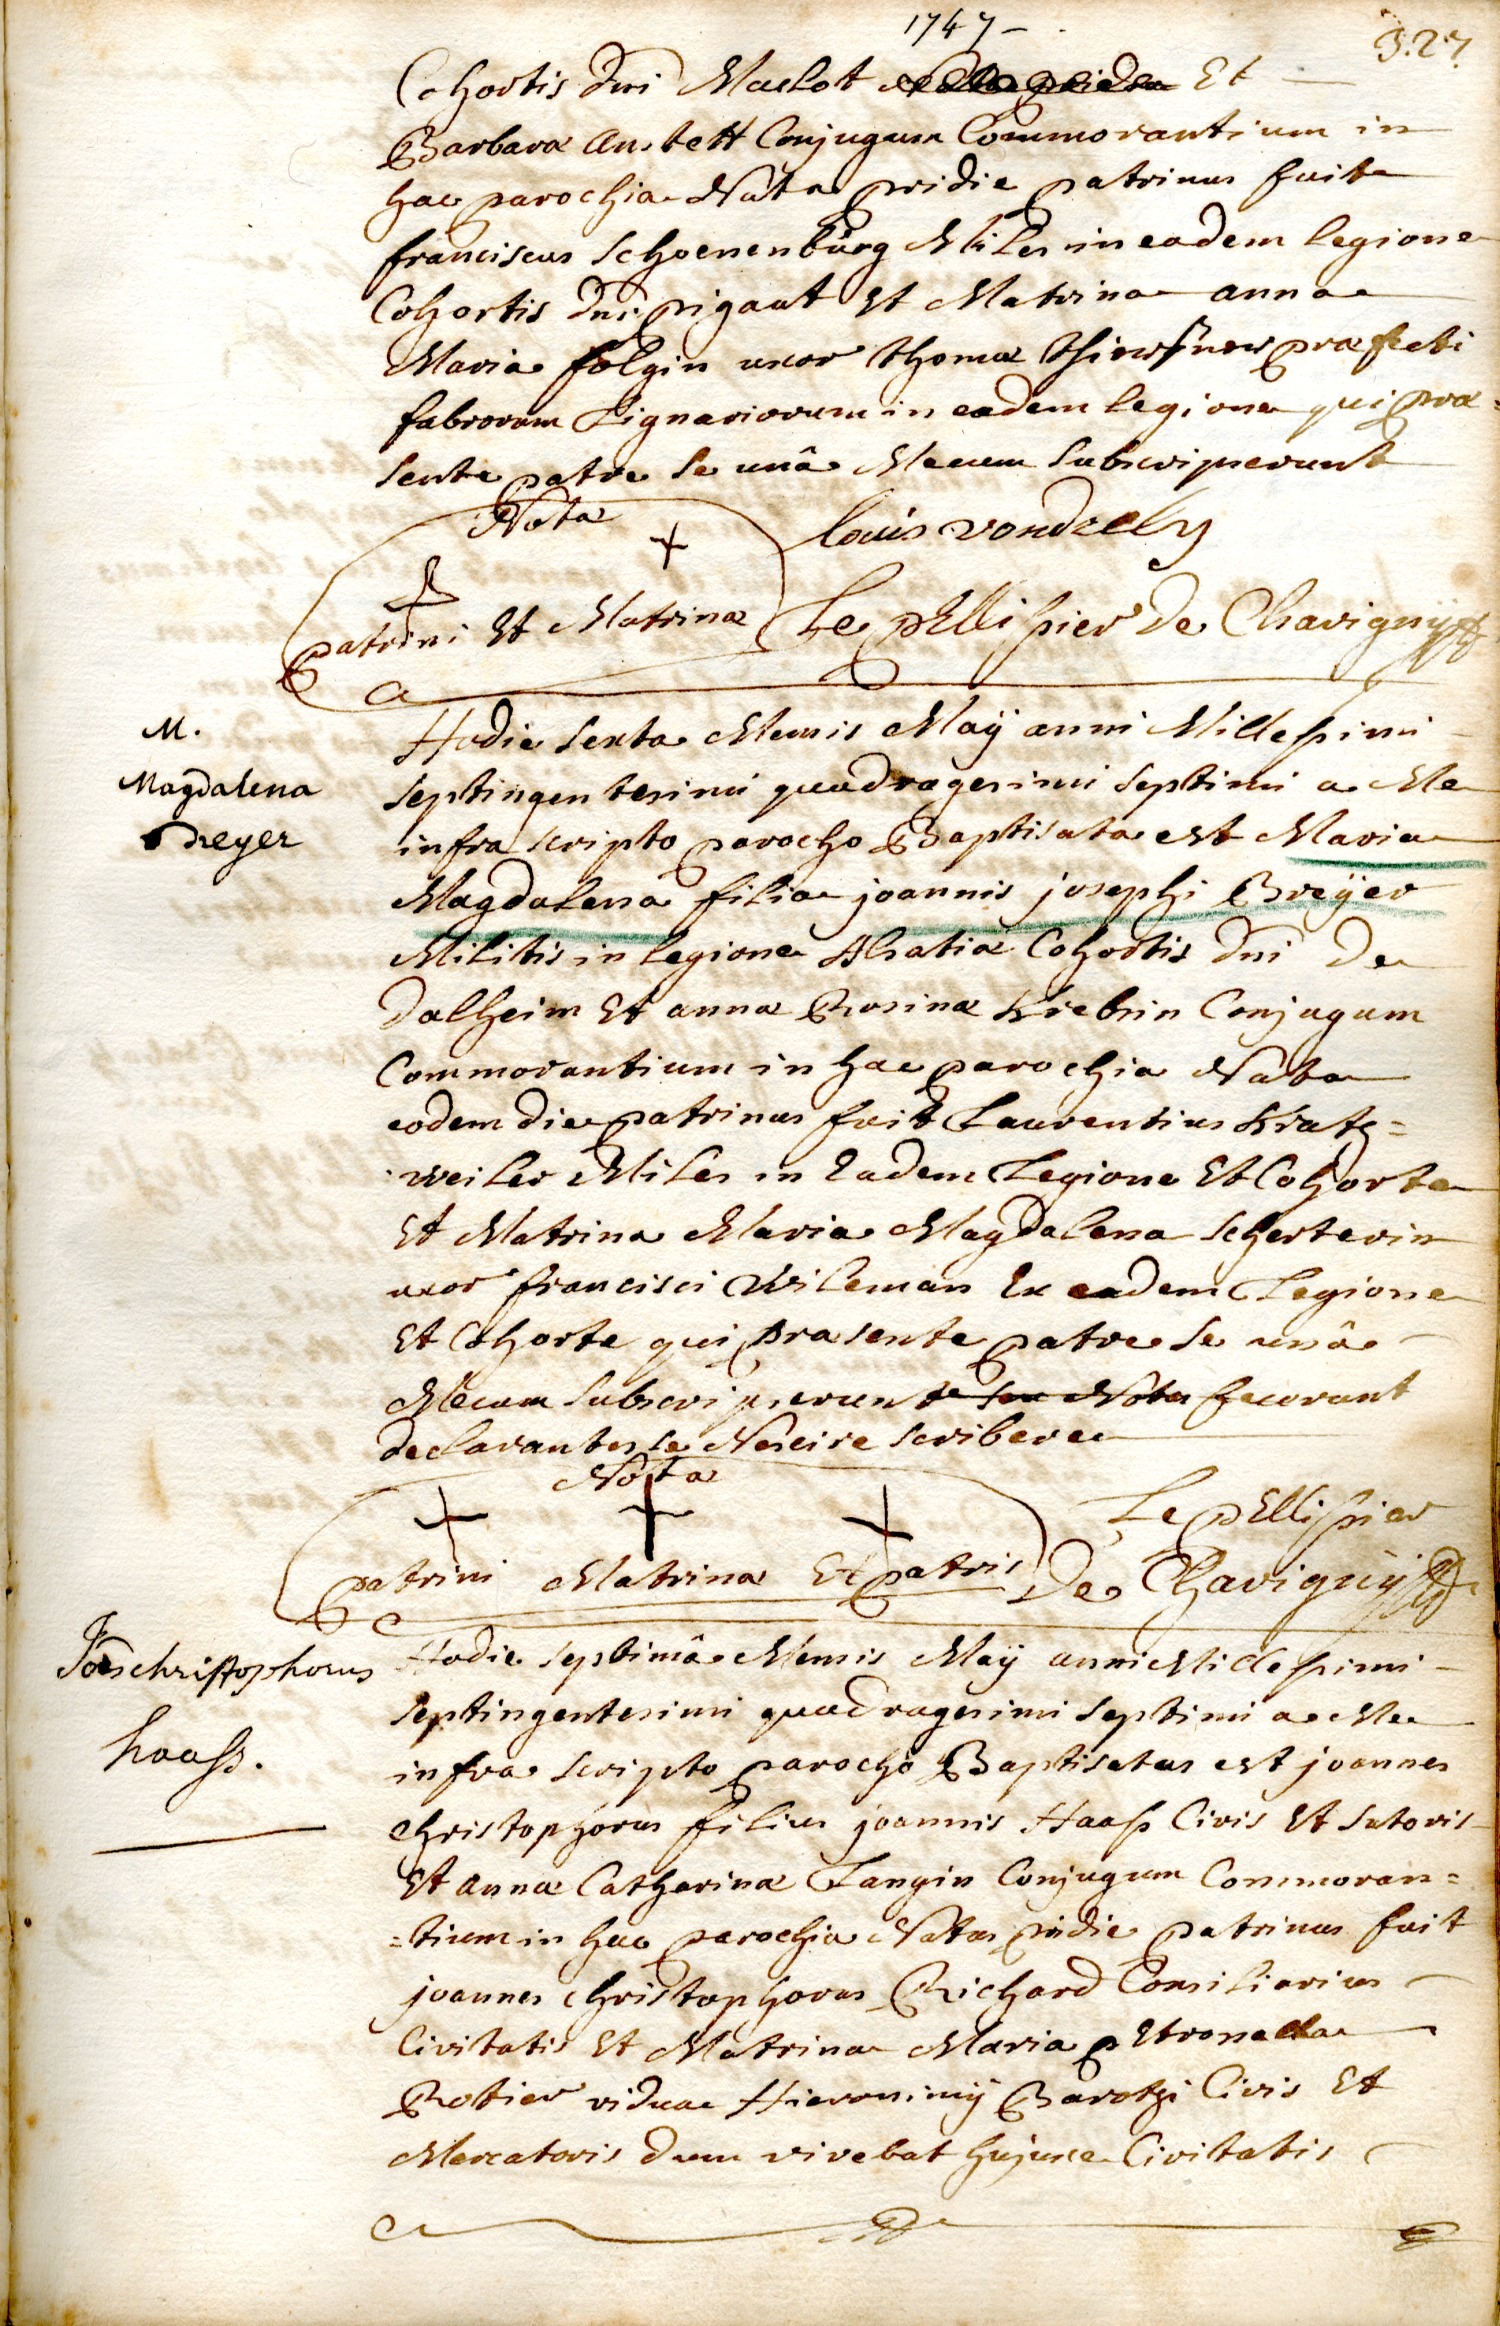 1747 -
327
Cohortis dni Maclot Et
Barbaræ Anstett Conjugum Commorantium in
hac parochia Nata pridie patrinus fuit
franciscus Schoenenbürg Miles in eadem legione
Cohortis dni pigaut Et Matrina anna
Maria folgin uxor thomæ præfecti
fabrorum Lignariorum in eadem legione qui præ=
sente patre se unâ Mecum Subscripserunt
Nota
Louis vondrely
patrini Et Matrinæ
Le pEllissier De Chavigny
M.
Magdalena
Breyer
Hodie sexta Mensis Maÿ anni Millessimi
septingentesimi quadragesimi septimi a Me
infra scripto parocho Baptisata est Maria
Magdalena filia joannis josephi Breÿer
Militis in legione Alsatiæ Cohortis dni De
Dalheim Et annæ Rosinæ Krebsin Conjugum
Commorantium in hac parochia Nata
eodem die patrinus fuit Laurentius Kratz=
weiler Miles in Eadem Legione Et Cohorte
Et Matrina Maria Magdalena Scherterin
uxor francisci Wileman Ex eadem Legione
Et Cohorte qui præsente patre se unâ
Mecum subscripserunt seu Nota fecerunt
declarantes se Nescire scribere
Nota
patrini Matrinæ Et patris
Le pEllissier
De Chavigny
Joes christophorus
haass.
Hodie septimâ Mensis Maÿ anni Millessimi
septingentesimi quadragesimi septimi a Me
infra scripto parocho Baptisatus est joannes
christophorus filius joannis Haass Civis Et sutoris
Et annæ Catharinæ Langin Conjugum Commoran=
=tium in hac parochia Natus pridie patrinus fuit
joannes christophorus Richard Consiliarius
Civitatis Et Matrina Maria pEtronella
Rotier vidua Hieronimÿ Barotzi Civis Et
Mercatoris dum vivebat hujusce Civitatis